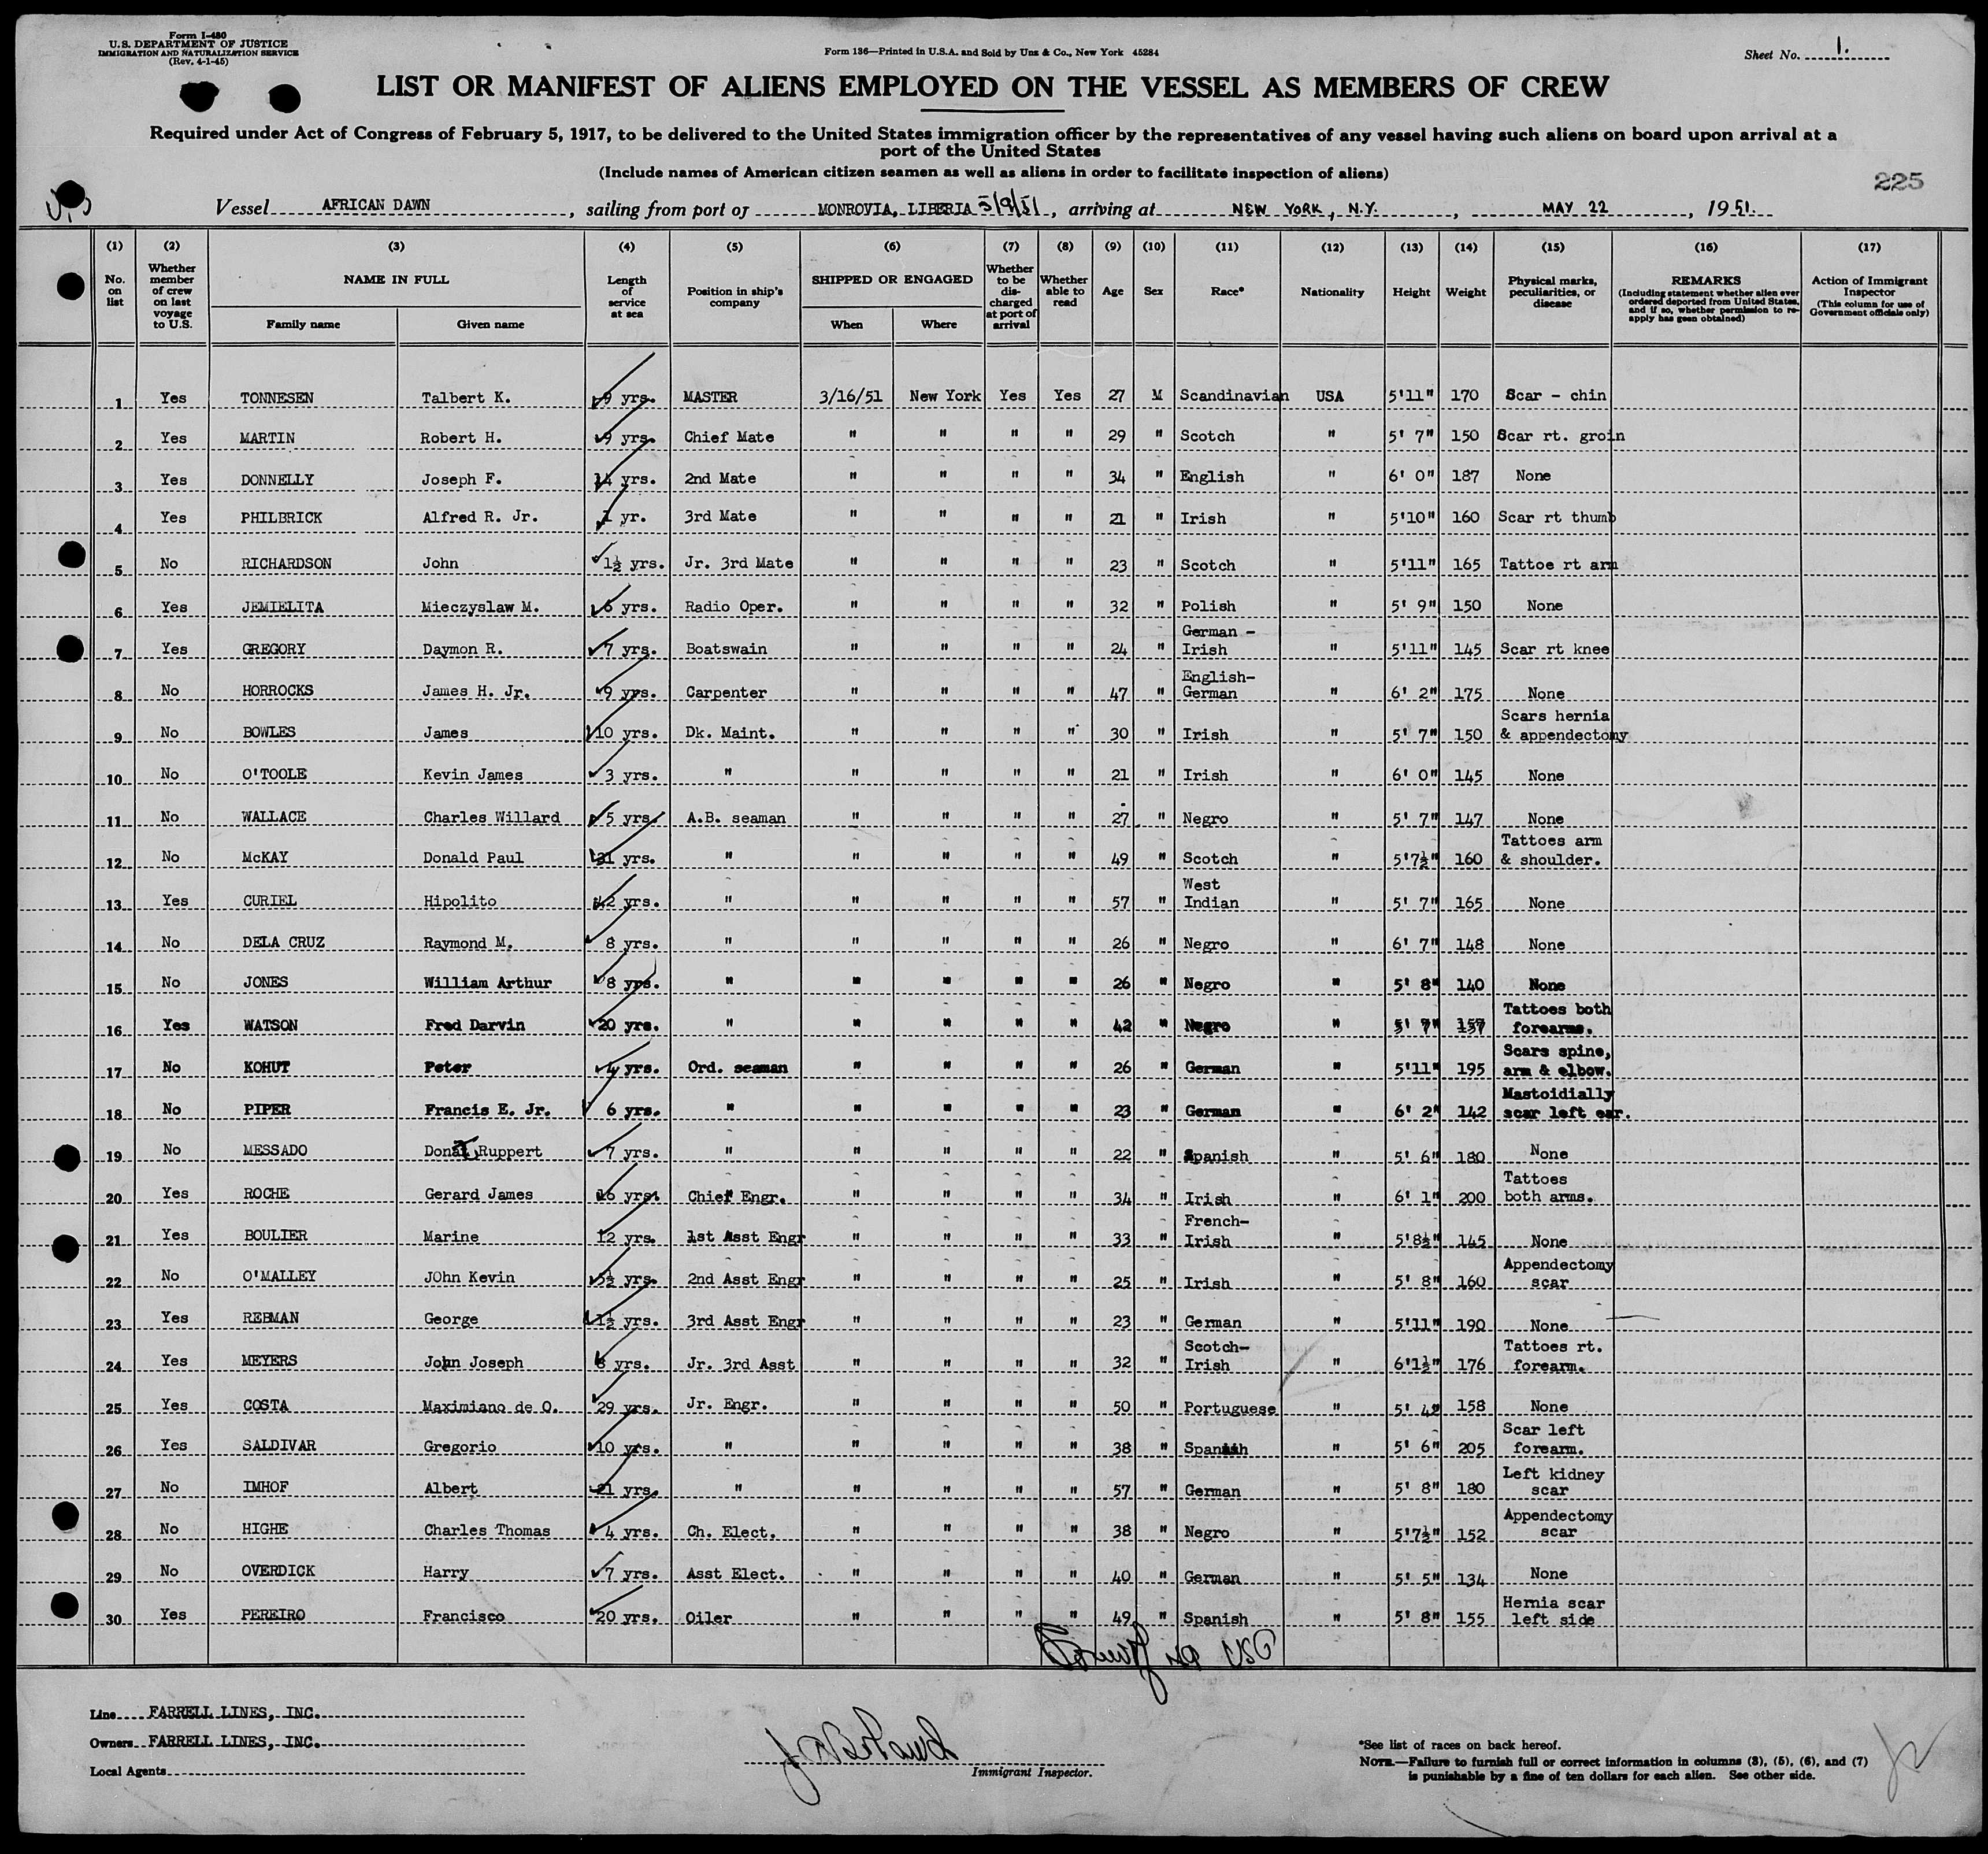 Form I-480
U.S. DEPARTMENT OF JUSTICE
IMMIGRATION AND NATURALIZATION SERVICE
(Rev. 4-1-45)
Form 136—Printed in U.S.A. and Sold by Unz & Co., New York 45284
Sheet No. 1.
LIST OR MANIFEST OF ALIENS EMPLOYED ON THE VESSEL AS MEMBERS OF CREW
Required under Act of Congress of February 5, 1917, to be delivered to the United States immigration officer by the representatives of any vessel having such aliens on board upon arrival at a
port of the United States
(Include names of American citizen seamen as well as aliens in order to facilitate inspection of aliens)
225
Vessel AFRICAN DAWN, sailing from port of MONROVIA, LIBERIA 5/9/51, arriving at NEW YORK, N.Y., MAY 22, 1951.
(1) (2) (3) (4) (5) (6) (7) (8) (9) (10) (11) (12) (13) (14) (15) (16) (17)
No. on list
Whether member of crew on last voyage to U.S.
NAME IN FULL
Family name
Given name
Length of service at sea
Position in ship's company
SHIPPED OR ENGAGED
When
Where
Whether to be discharged at port of arrival
Whether able to read
Age
Sex
Race*
Nationality
Height
Weight
Physical marks, peculiarities, or disease
REMARKS
(Including statement whether alien ever ordered deported from United States, and if so, whether permission to re-apply has geen obtained)
Action of Immigrant Inspector
(This column for use of Government officials only)
1 Yes TONNESEN Talbert K. 9 yrs. MASTER 3/16/51 New York Yes Yes 27 M Scandinavian USA 5'11" 170 Scar - chin
2 Yes MARTIN Robert H. 9 yrs. Chief Mate " " " " 29 " Scotch " 5' 7" 150 Scar rt. groin
3 Yes DONNELLY Joseph F. 14 yrs. 2nd Mate " " " " 34 " English " 6' 0" 187 None
4 Yes PHILBRICK Alfred R. Jr. 1 yr. 3rd Mate " " " " 21 " Irish " 5'10" 160 Scar rt thumb
5 No RICHARDSON John 1½ yrs. Jr. 3rd Mate " " " " 23 " Scotch " 5'11" 165 Tattoe rt arm
6 Yes JEMIELITA Mieczyslaw M. 6 yrs. Radio Oper. " " " " 32 " Polish " 5' 9" 150 None
7 Yes GREGORY Daymon R. 7 yrs. Boatswain " " " " 24 " German - Irish " 5'11" 145 Scar rt knee
8 No HORROCKS James H. Jr. 9 yrs. Carpenter " " " " 47 " English- German " 6' 2" 175 None
9 No BOWLES James 10 yrs. Dk. Maint. " " " " 30 " Irish " 5' 7" 150 Scars hernia & appendectomy
10 No O'TOOLE Kevin James 3 yrs. " " " " " 21 " Irish " 6' 0" 145 None
11 No WALLACE Charles Willard 5 yrs. A.B. seaman " " " " 27 " Negro " 5' 7" 147 None
12 No McKAY Donald Paul 21 yrs. " " " " " 49 " Scotch " 5'7½" 160 Tattoos arm & shoulder.
13 Yes CURIEL Hipolito 42 yrs. " " " " " 57 " West Indian " 5' 7" 165 None
14 No DELA CRUZ Raymond M. 8 yrs. " " " " " 26 " Negro " 6' 7" 148 None
15 No JONES William Arthur 8 yrs. " " " " " 26 " Negro " 5' 8" 140 None
16 Yes WATSON Fred Darvin 20 yrs. " " " " " 42 " Negro " 5' 7" 157 Tattoes both forearms.
17 No KOHUT Peter 4 yrs. Ord. seaman " " " " 26 " German " 5'11" 195 Scars spine, arm & elbow.
18 No PIPER Francis E. Jr. 6 yrs. " " " " " 23 " German " 6' 2" 142 Mastoidially scar left ear.
19 No MESSADO Ruppert 7 yrs. " " " " " 22 " Spanish " 5' 6" 180 None
20 Yes ROCHE Gerard James 16 yrs. Chief Engr. " " " " 34 " Irish " 6' 1" 200 Tattoes both arms.
21 Yes BOULIER Marine 12 yrs. 1st Asst Engr " " " " 33 " French- Irish " 5'8½" 145 None
22 No O'MALLEY JOhn Kevin 5½ yrs. 2nd Asst Engr " " " " 25 " Irish " 5' 8" 160 Appendectomy scar
23 Yes REBMAN George 1½ yrs. 3rd Asst Engr " " " " 23 " German " 5'11" 190 None
24 Yes MEYERS John Joseph 8 yrs. Jr. 3rd Asst " " " " 32 " Scotch- Irish " 6'1½" 176 Tattoes rt. forearm.
25 Yes COSTA Maximiano de O. 29 yrs. Jr. Engr. " " " " 50 " Portuguese " 5' 4" 158 None
26 Yes SALDIVAR Gregorio 10 yrs. " " " " " 38 " Spanish " 5' 6" 205 Scar left forearm.
27 No IMHOF Albert 21 yrs. " " " " " 57 " German " 5' 8" 180 Left kidney scar
28 No HIGHE Charles Thomas 4 yrs. Ch. Elect. " " " " 38 " Negro " 5'7½" 152 Appendectomy scar
29 No OVERDICK Harry 7 yrs. Asst Elect. " " " " 40 " German " 5' 5" 134 None
30 Yes PEREIRO Francisco 20 yrs. Oiler " " " " 49 " Spanish " 5' 8" 155 Hernia scar left side
Line FARRELL LINES, INC.
Owners FARRELL LINES, INC.
Local Agents
Immigrant Inspector.
*See list of races on back hereof.
NOTE.—Failure to furnish full or correct information in columns (3), (5), (6), and (7)
is punishable by a fine of ten dollars for each alien. See other side.